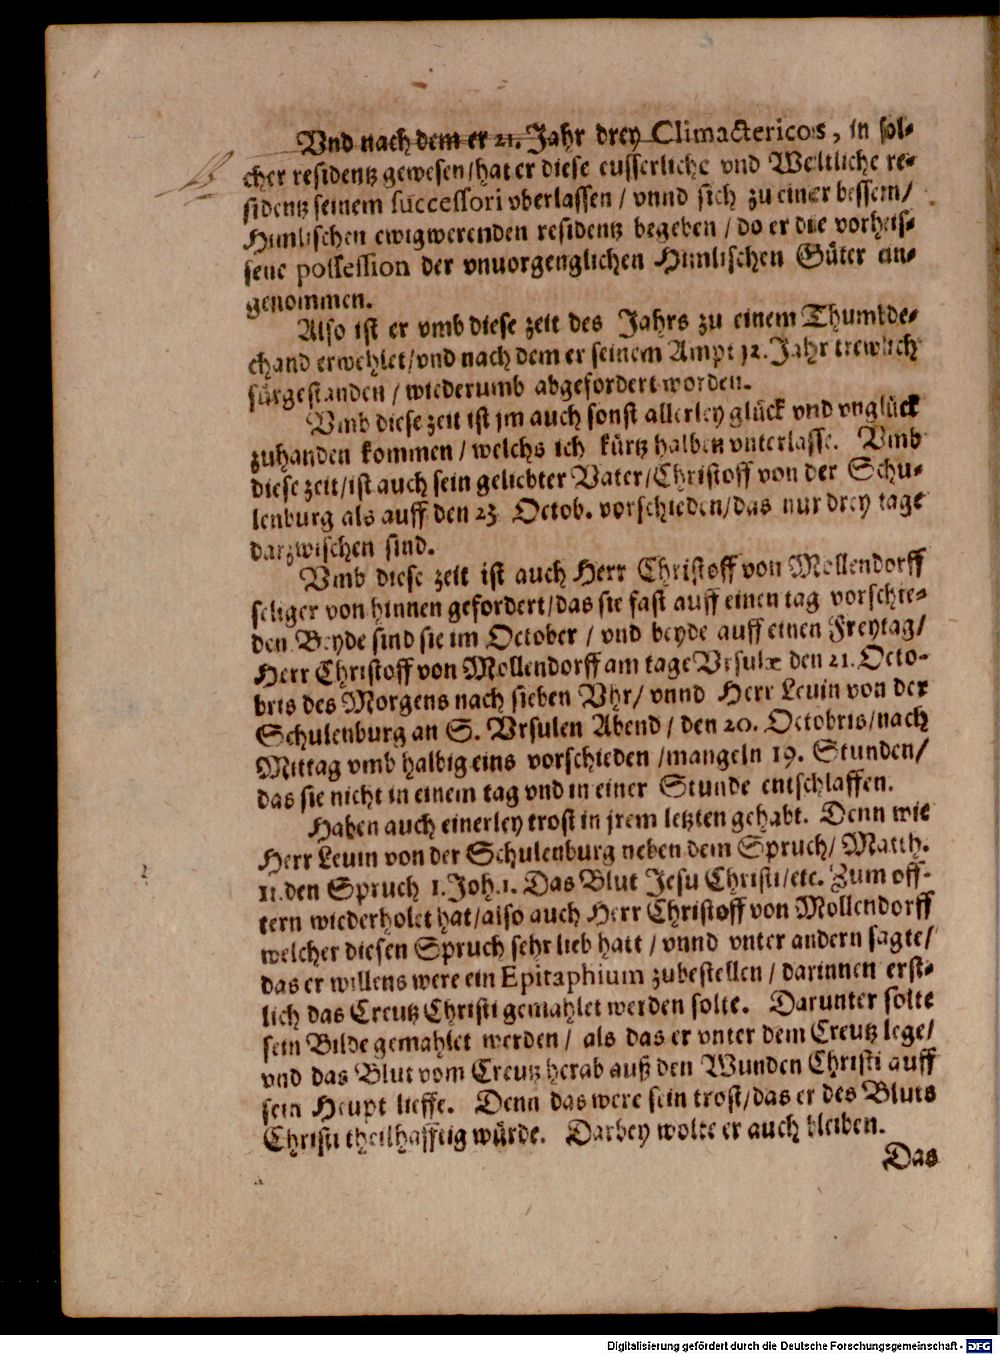 Vnd nach dem er 21. Jahr drey Climactericos, in sol-
cher residentz gewesen / hat er diese eusserliche vnd Weltliche re-
sidentz seinem successori vberlassen / vnnd sich zu einer bessern /
Himlischen ewigwerenden residentz begeben / do er die vorheis-
sene possession der vnuorgenglichen Himlischen Güter ein-
genommen.
Also ist er vmb diese zeit des Jahrs zu einem Thumbde-
chand erwehlet / vnd nach dem er seinem Ampt 12. Jahr trewlich
fürgestanden / wiederumb abgefordert worden.
Vmb diese zeit ist jm auch sonst allerley glück vnd vnglück
zuhanden kommen / welchs ich kürtz halben vnterlasse. Vmb
diese zeit / ist auch sein geliebter Vater / Christoff von der Schu-
lenburg als auff den 23 Octob. vorschieden / das nur drey tage
darzwischen sind.
Vmb diese zeit ist auch Herr Christoff von Mollendorff
seliger von hinnen gefordert / das sie fast auff einen tag vorschie-
den Beyde sind sie im October / vnd beyde auff einen Freytag /
Herr Christoff von Mollendorff am tage Vrsulæ den 21. Octo-
bris des Morgens nach sieben Vhr / vnnd Herr Leuin von der
Schulenburg an S. Vrsulen Abend / den 20. Octobris / nach
Mittag vmb halbig eins vorschieden / mangeln 19. Stunden /
das sie nicht in einem tag vnd in einer Stunde entschlaffen.
Haben auch einerley trost in jrem letzten gehabt. Denn wie
Herr Leuin von der Schulenburg neben dem Spruch / Matth.
11. den Spruch 1. Joh. 1. Das Blut Jesu Christi / etc. Zum off-
tern wiederholet hat / also auch Herr Christoff von Mollendorff
welcher diesen Spruch sehr lieb hatt / vnnd vnter andern sagte /
das er willens were ein Epitaphium zubestellen / darinnen erst-
lich das Creutz Christi gemahlet werden solte. Darunter solte
sein Bilde gemahlet werden / als das er vnter dem Creutz lege /
vnd das Blut vom Creutz herab auß den Wunden Christi auff
sein Heupt lieffe. Denn das were sein trost / das er des Bluts
Christi theilhafftig würde. Darbey wolte er auch bleiben.
Das
Digitalisierung gefördert durch die Deutsche Forschungsgemeinschaft - DFG